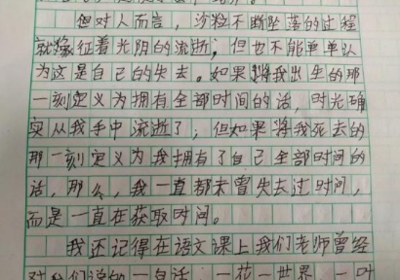 但对人而言，沙粒不断坠落的过程
就象征着光阴的流逝；但也不能单单认
为这是自己的失去。如果将我出生的那
一刻定义为拥有全部时间的话，时光确
实从我手中流逝了，但如果将我死去的
那一刻定义为我拥有了自己全部时间的
话，那么，我一直都未曾失去过时间，
而是一直在获取时间。
我还记得在语文课上我们老师曾经
对我们说的一句话：一花一世界，一叶